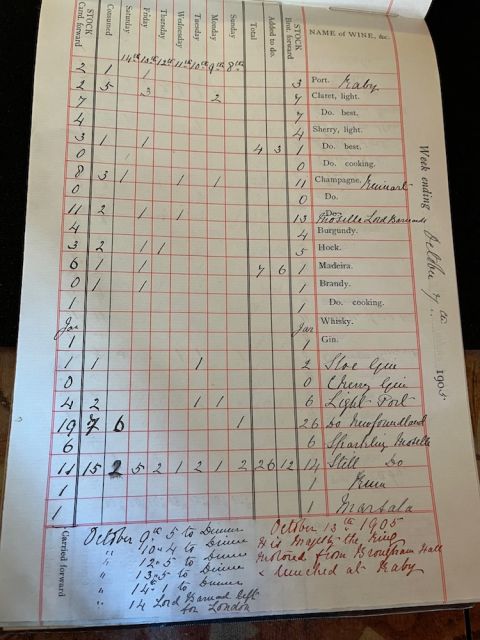 Week ending October 7th 1905
STOCK Card. forward
Consumed
Saturday 14th
Friday 13th
Thursday 12th
Wednesday 11th
Tuesday 10th
Monday 9th
Sunday 8th
Total
Added to do.
STOCK Brot. forward
NAME of WINE, &c.
2 1 1 3 Port. Raby
2 5 3 2 7 Claret, light.
7 7 Do. best.
4 4 Sherry, light.
3 1 1 4 3 1 Do. best.
0 0 Do. cooking.
8 3 1 1 1 11 Champagne. Ruinart
0 0 Do.
11 2 1 1 13 Do. Moselle Lord Barnards
4 4 Burgundy.
3 2 1 1 5 Hock.
6 1 1 7 6 1 Madeira.
0 1 1 1 Brandy.
1 1 Do. cooking.
Jar Jar Whisky.
1 1 Gin.
1 1 1 2 Sloe Gin
0 0 Cherry Gin
4 2 1 1 6 Light Port
19 7 6 1 26 Do Newfoundland
6 6 Sparkling Moselle
11 15 2 5 2 1 2 1 2 26 12 14 Still Do
1 1
1 1 Marsala
Carried forward
October 9th 5 to Dinner
" 10 - 4 to Dinner
" 12 - 5 to Dinner
" 13 - 5 to Dinner
" 14 - 1 to Dinner
" 14 Lord Barnard left
for London
October 13th 1905
His Majesty the King
motored from Brougham Hall
& lunched at Raby